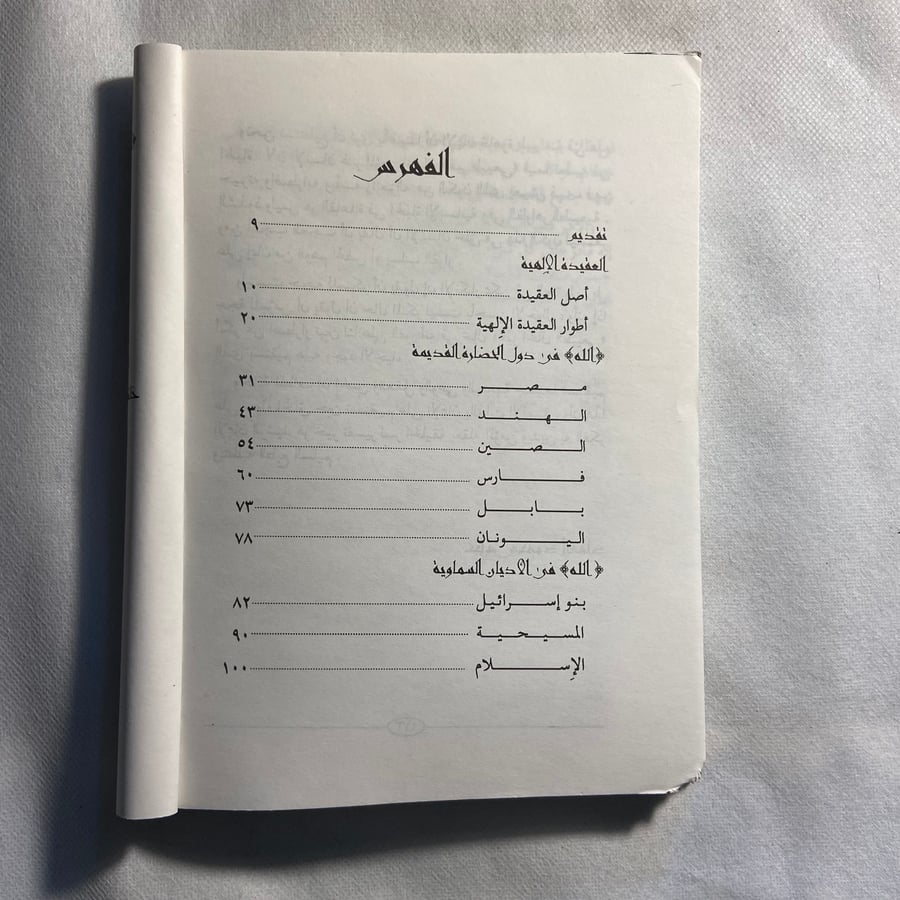 الفهرس
تقديم ٩
العقيدة الإلهية
أصل العقيدة ١٠
أطوار العقيدة الإلهية ٢٠
﴿الله﴾ فى دول الحضارة القديمة
مصر ٣١
الهند ٤٣
الصين ٥٤
فارس ٦٠
بابل ٧٣
اليونان ٧٨
﴿الله﴾ فى الأديان السماوية
بنو إسرائيل ٨٢
المسيحية ٩٠
الإسلام ١٠٠